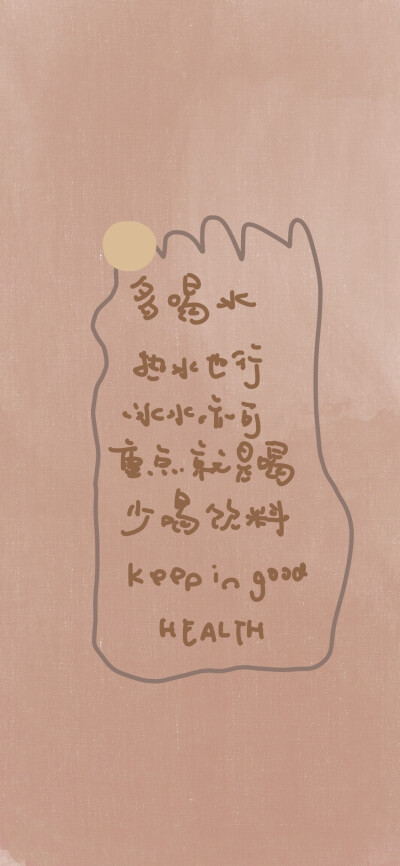 多喝水
热水也行
冰水亦可
重点就是喝
少喝饮料
keep in good
HEALTH